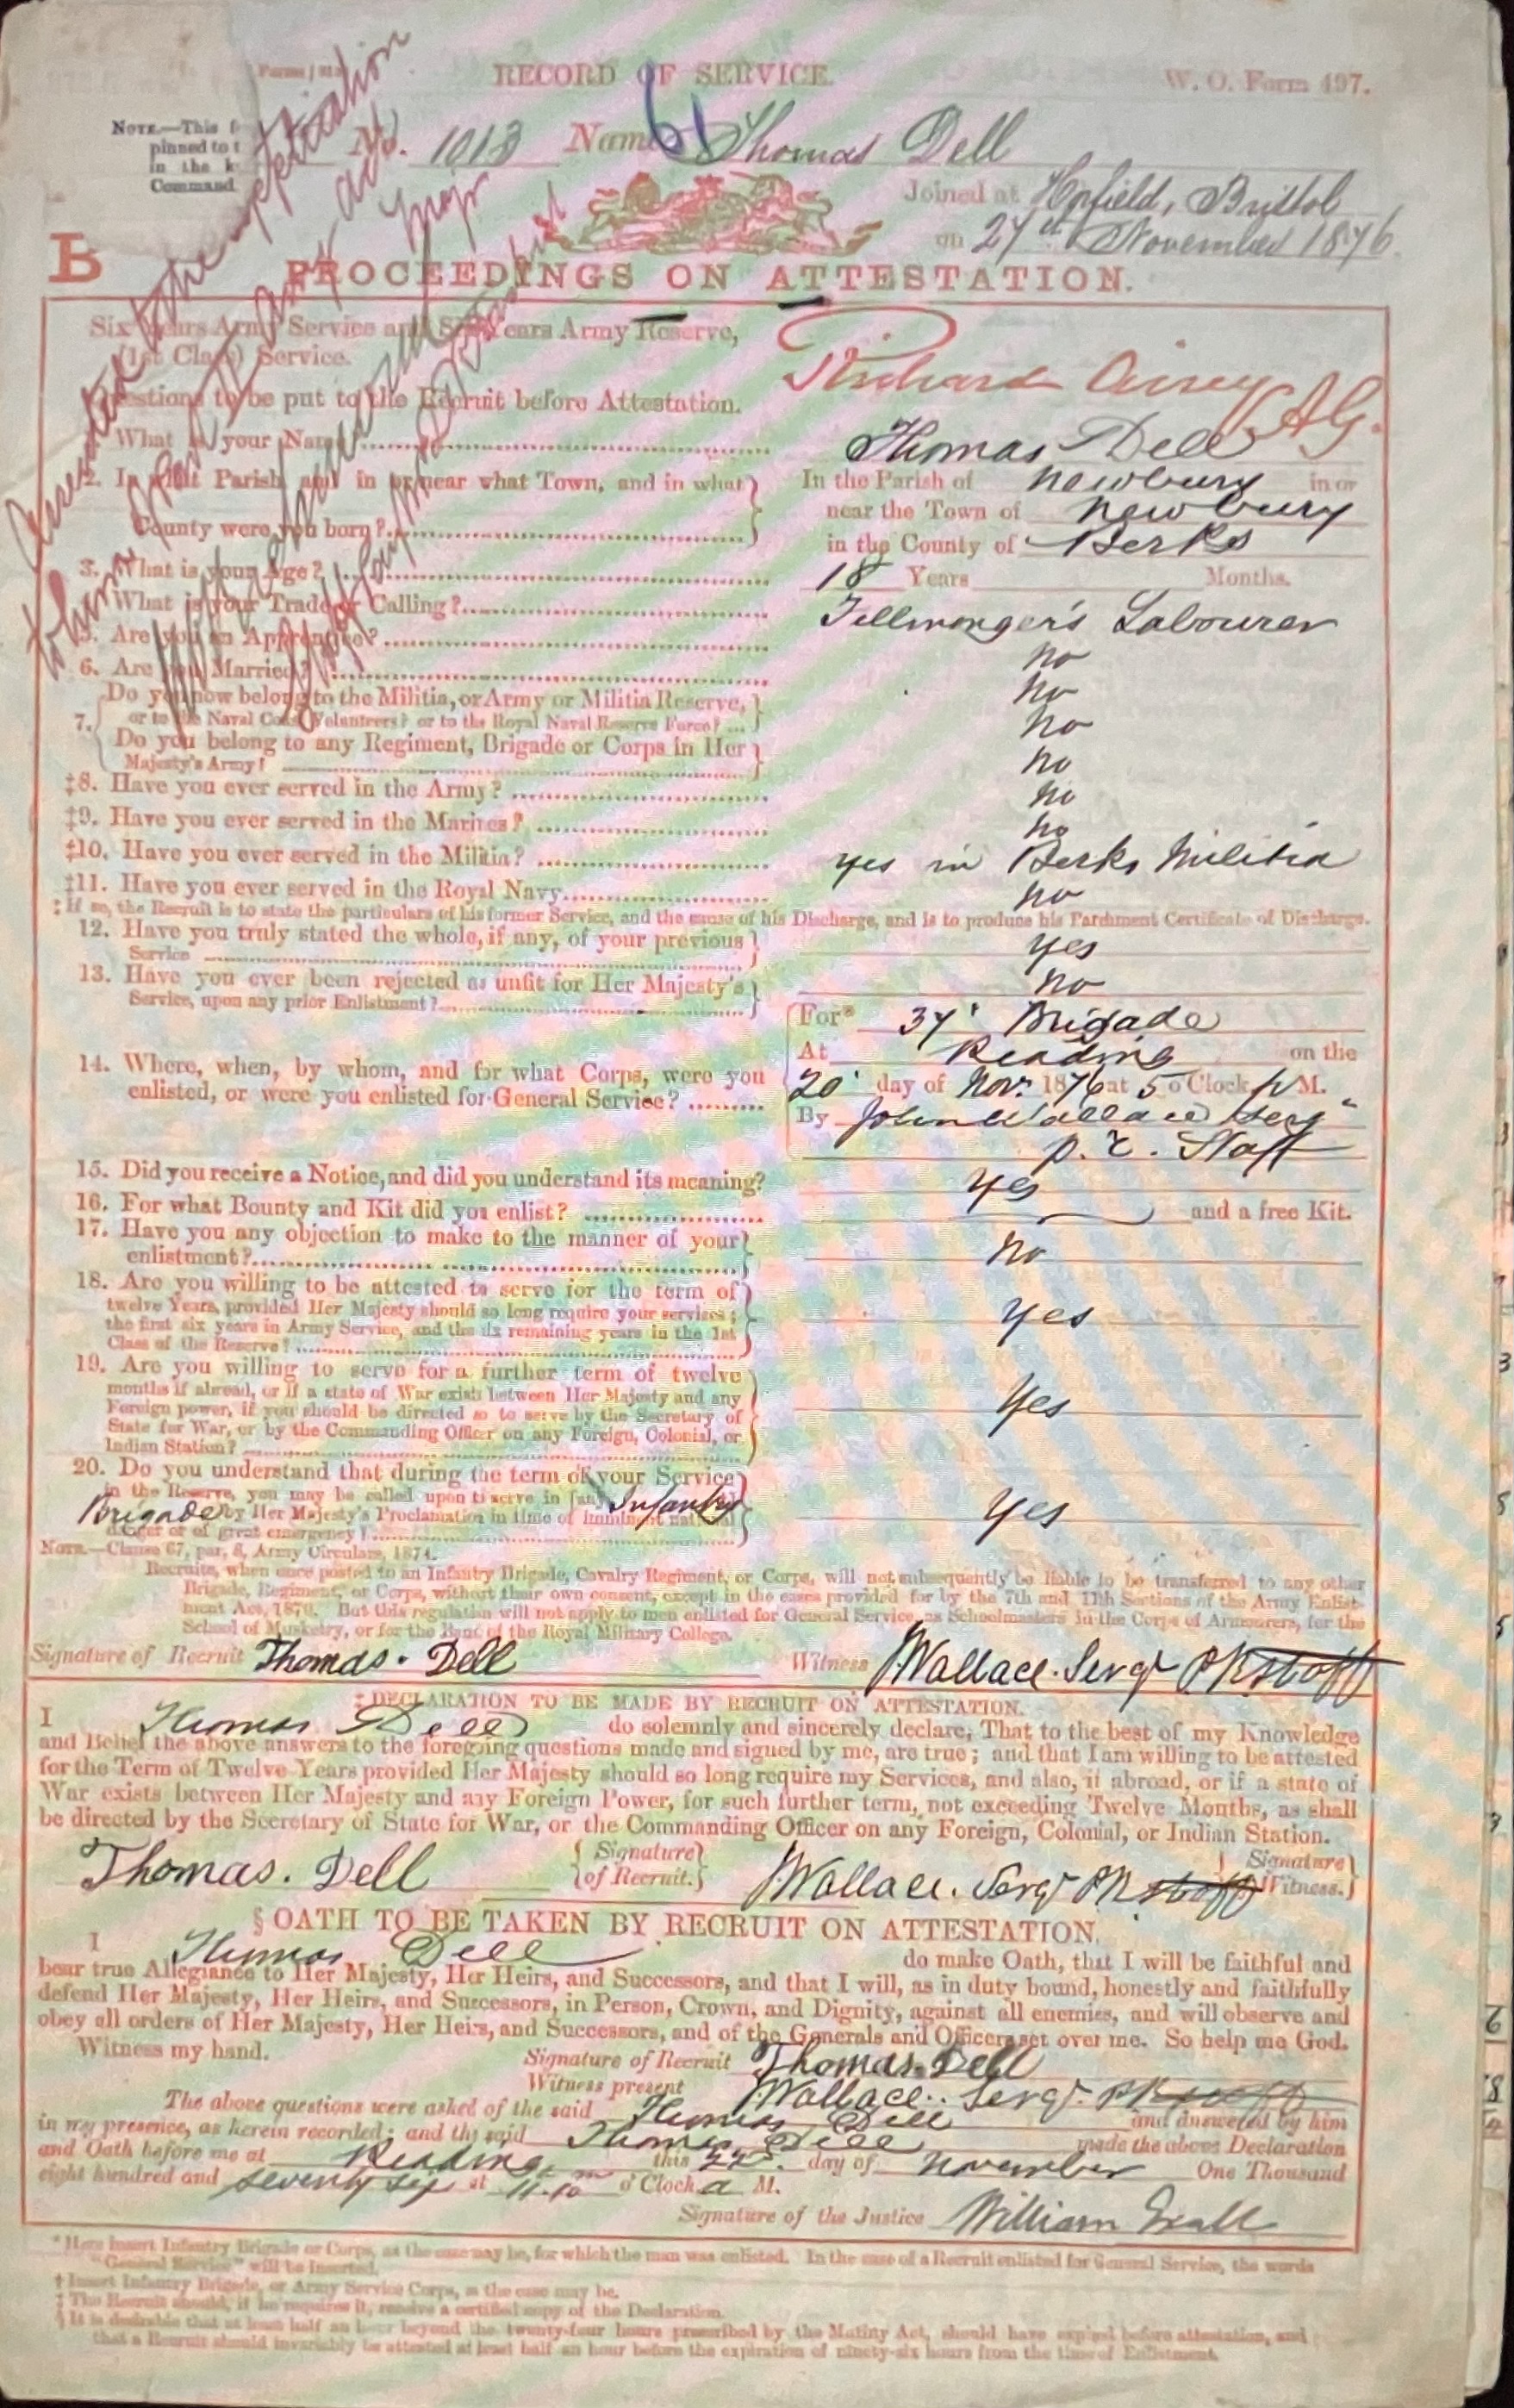 RECORD OF SERVICE.
W. O. Form 497.
NOTE.—This f
pinned to t
in the k
Command.
No. 1013 Name Thomas Dell
61
Joined at Horfield, Bristol
on 27th November 1876.
B
PROCEEDINGS ON ATTESTATION.
Six Years Army Service and Six Years Army Reserve,
(1st Class) Service.
Richard Airey AG.
Questions to be put to the Recruit before Attestation.
What is your Name? Thomas Dell
2. In what Parish, and in or near what Town, and in what
County were you born?
In the Parish of Newbury in or
near the Town of Newbury
in the County of Berks
3. What is your Age? 18 Years Months.
What is your Trade or Calling? Fellmonger's Labourer
5. Are you an Apprentice? no
6. Are you Married? no
7. Do you now belong to the Militia, or Army or Militia Reserve,
or to the Naval Coast Volunteers? or to the Royal Naval Reserve Force? no
Do you belong to any Regiment, Brigade or Corps in Her
Majesty's Army? no
‡8. Have you ever served in the Army? no
‡9. Have you ever served in the Marines? no
‡10. Have you ever served in the Militia? yes in Berks Militia
‡11. Have you ever served in the Royal Navy no
‡ If so, the Recruit is to state the particulars of his former Service, and the cause of his Discharge, and is to produce his Parchment Certificate of Discharge.
12. Have you truly stated the whole, if any, of your previous
Service yes
13. Have you ever been rejected as unfit for Her Majesty's
Service, upon any prior Enlistment? no
14. Where, when, by whom, and for what Corps, were you
enlisted, or were you enlisted for General Service?
For* 37' Brigade
At Reading on the
20' day of Nov. 1876 at 5 o'Clock p M.
By John Wallace Serg
P. Staff
15. Did you receive a Notice, and did you understand its meaning? yes
16. For what Bounty and Kit did you enlist? and a free Kit.
17. Have you any objection to make to the manner of your
enlistment? no
18. Are you willing to be attested to serve for the term of
twelve Years, provided Her Majesty should so long require your services;
the first six years in Army Service, and the six remaining years in the 1st
Class of the Reserve? yes
19. Are you willing to serve for a further term of twelve
months if abroad, or if a state of War exists between Her Majesty and any
Foreign power, if you should be directed so to serve by the Secretary of
State for War, or by the Commanding Officer on any Foreign, Colonial, or
Indian Station? yes
20. Do you understand that during the term of your Service
in the Reserve, you may be called upon to serve in [any] Infantry
Brigade by Her Majesty's Proclamation in time of imminent national
danger or of great emergency? yes
NOTE.—Clause 67, par. 8, Army Circulars, 1874.
Recruits, when once posted to an Infantry Brigade, Cavalry Regiment, or Corps, will not subsequently be liable to be transferred to any other
Brigade, Regiment, or Corps, without their own consent, except in the cases provided for by the 7th and 11th Sections of the Army Enlist-
ment Act, 1870. But this regulation will not apply to men enlisted for General Service, as Schoolmasters in the Corps of Armourers, for the
School of Musketry, or for the Band of the Royal Military College.
Signature of Recruit Thomas. Dell Witness JWallace. Sergt PR Staff
‡ DECLARATION TO BE MADE BY RECRUIT ON ATTESTATION.
I Thomas Dell do solemnly and sincerely declare, That to the best of my Knowledge
and Belief the above answers to the foregoing questions made and signed by me, are true; and that I am willing to be attested
for the Term of Twelve Years provided Her Majesty should so long require my Services, and also, if abroad, or if a state of
War exists between Her Majesty and any Foreign Power, for such further term, not exceeding Twelve Months, as shall
be directed by the Secretary of State for War, or the Commanding Officer on any Foreign, Colonial, or Indian Station.
Thomas. Dell Signature of Recruit. JWallace. Sergt PR Staff Signature Witness.
§ OATH TO BE TAKEN BY RECRUIT ON ATTESTATION.
I Thomas Dell do make Oath, that I will be faithful and
bear true Allegiance to Her Majesty, Her Heirs, and Successors, and that I will, as in duty bound, honestly and faithfully
defend Her Majesty, Her Heirs, and Successors, in Person, Crown, and Dignity, against all enemies, and will observe and
obey all orders of Her Majesty, Her Heirs, and Successors, and of the Generals and Officers set over me. So help me God.
Witness my hand. Signature of Recruit Thomas. Dell
Witness present JWallace. Sergt. PR Staff
The above questions were asked of the said Thomas Dell and answered by him
in my presence, as herein recorded; and the said Thomas Dell made the above Declaration
and Oath before me at Reading this 22d. day of November One Thousand
eight hundred and seventy six at 11.10 o'Clock a M.
Signature of the Justice William Exall
* Here insert Infantry Brigade or Corps, as the case may be, for which the man was enlisted. In the case of a Recruit enlisted for General Service, the words
"General Service" will be inserted.
† Insert Infantry Brigade, or Army Service Corps, as the case may be.
‡ The Recruit should, if he requires it, receive a certified copy of the Declaration.
§ It is desirable that at least half an hour beyond the twenty-four hours prescribed by the Mutiny Act, should have expired before attestation, and
that a Recruit should invariably be attested at least half an hour before the expiration of ninety-six hours from the time of Enlistment.